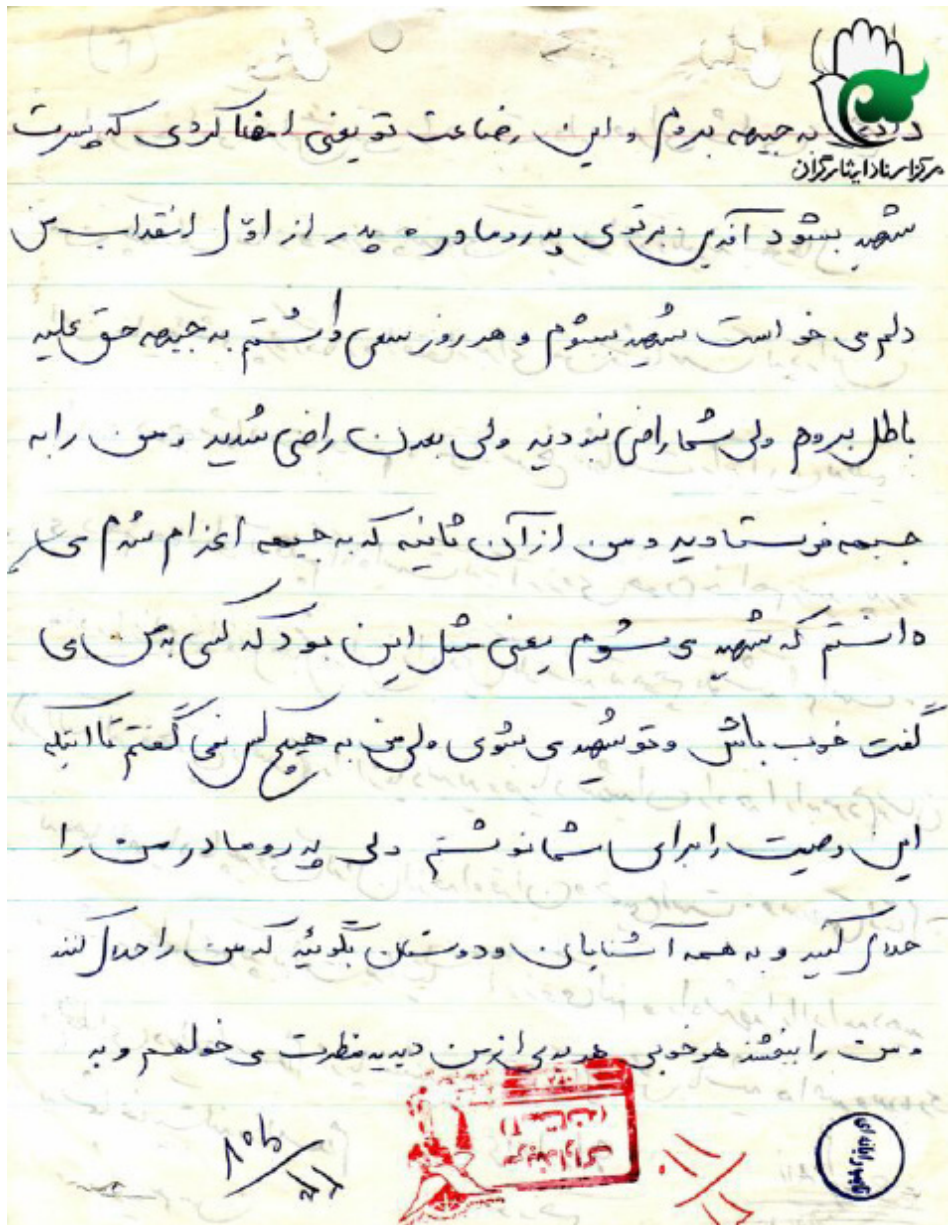 مرکز اسناد ایثارگران
به جبهه بروم و این رضاعت تو یعنی امضا کردی که پسرت
شهید بشود آفرین بر توی پدر و مادر ه پدر از اوّل انقلاب من
دلم می خواست شهید بشوم و هر روز سعی داشتم به جبهه حق علیه
باطل بروم ولی شما راضی نبودید ولی بعدن راضی شدید و من را به
جبهه فرستادید و من از آن ثانیه که به جبهه اعزام شدم می
دانستم که شهید می شوم یعنی مثل این بود که کسی به من می
گفت خوب باش و تو شهید می شوی ولی من به هیچ کس نمی گفتم تا اینکه
این وصیت را برای شما نوشتم ولی پدر و مادر من را
حلال کنید و به همه آشنایان و دوستان بگوئید که من را حلال کنند
و من را ببخشند هر خوبی هر بدی از من دیدید معظرت می خواهم و به